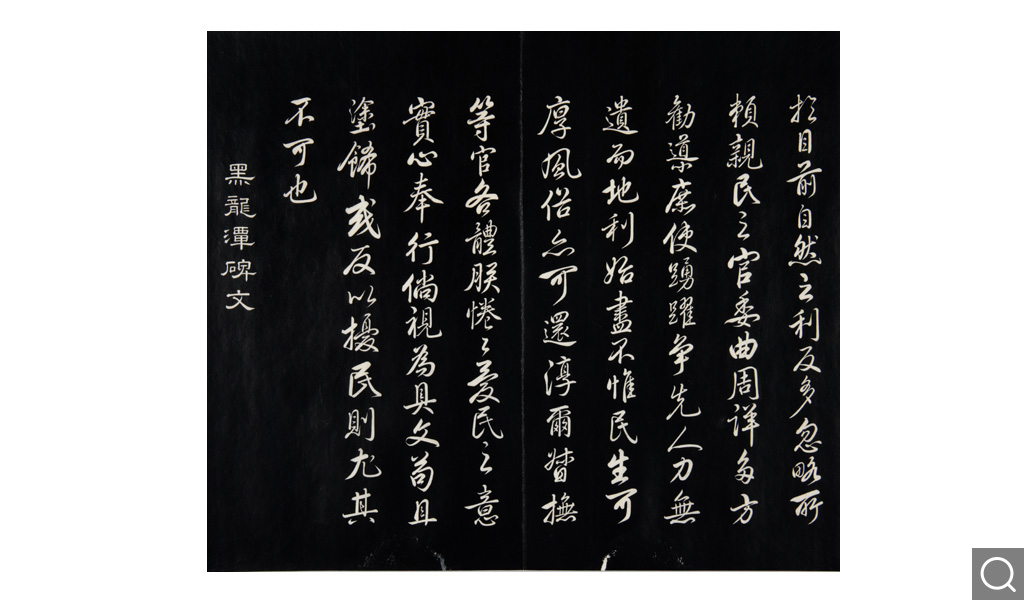 於目前自然之利反多忽略所
賴親民之官委曲周詳多方
勸導庶使踴躍争先人力無
遺而地利始盡不惟民生可
厚風俗亦可還淳爾督撫
等官各體朕惓惓愛民之意
實心奉行倘視為具文苟且
塗飾或反以擾民則尤其
不可也
黑龍潭碑文